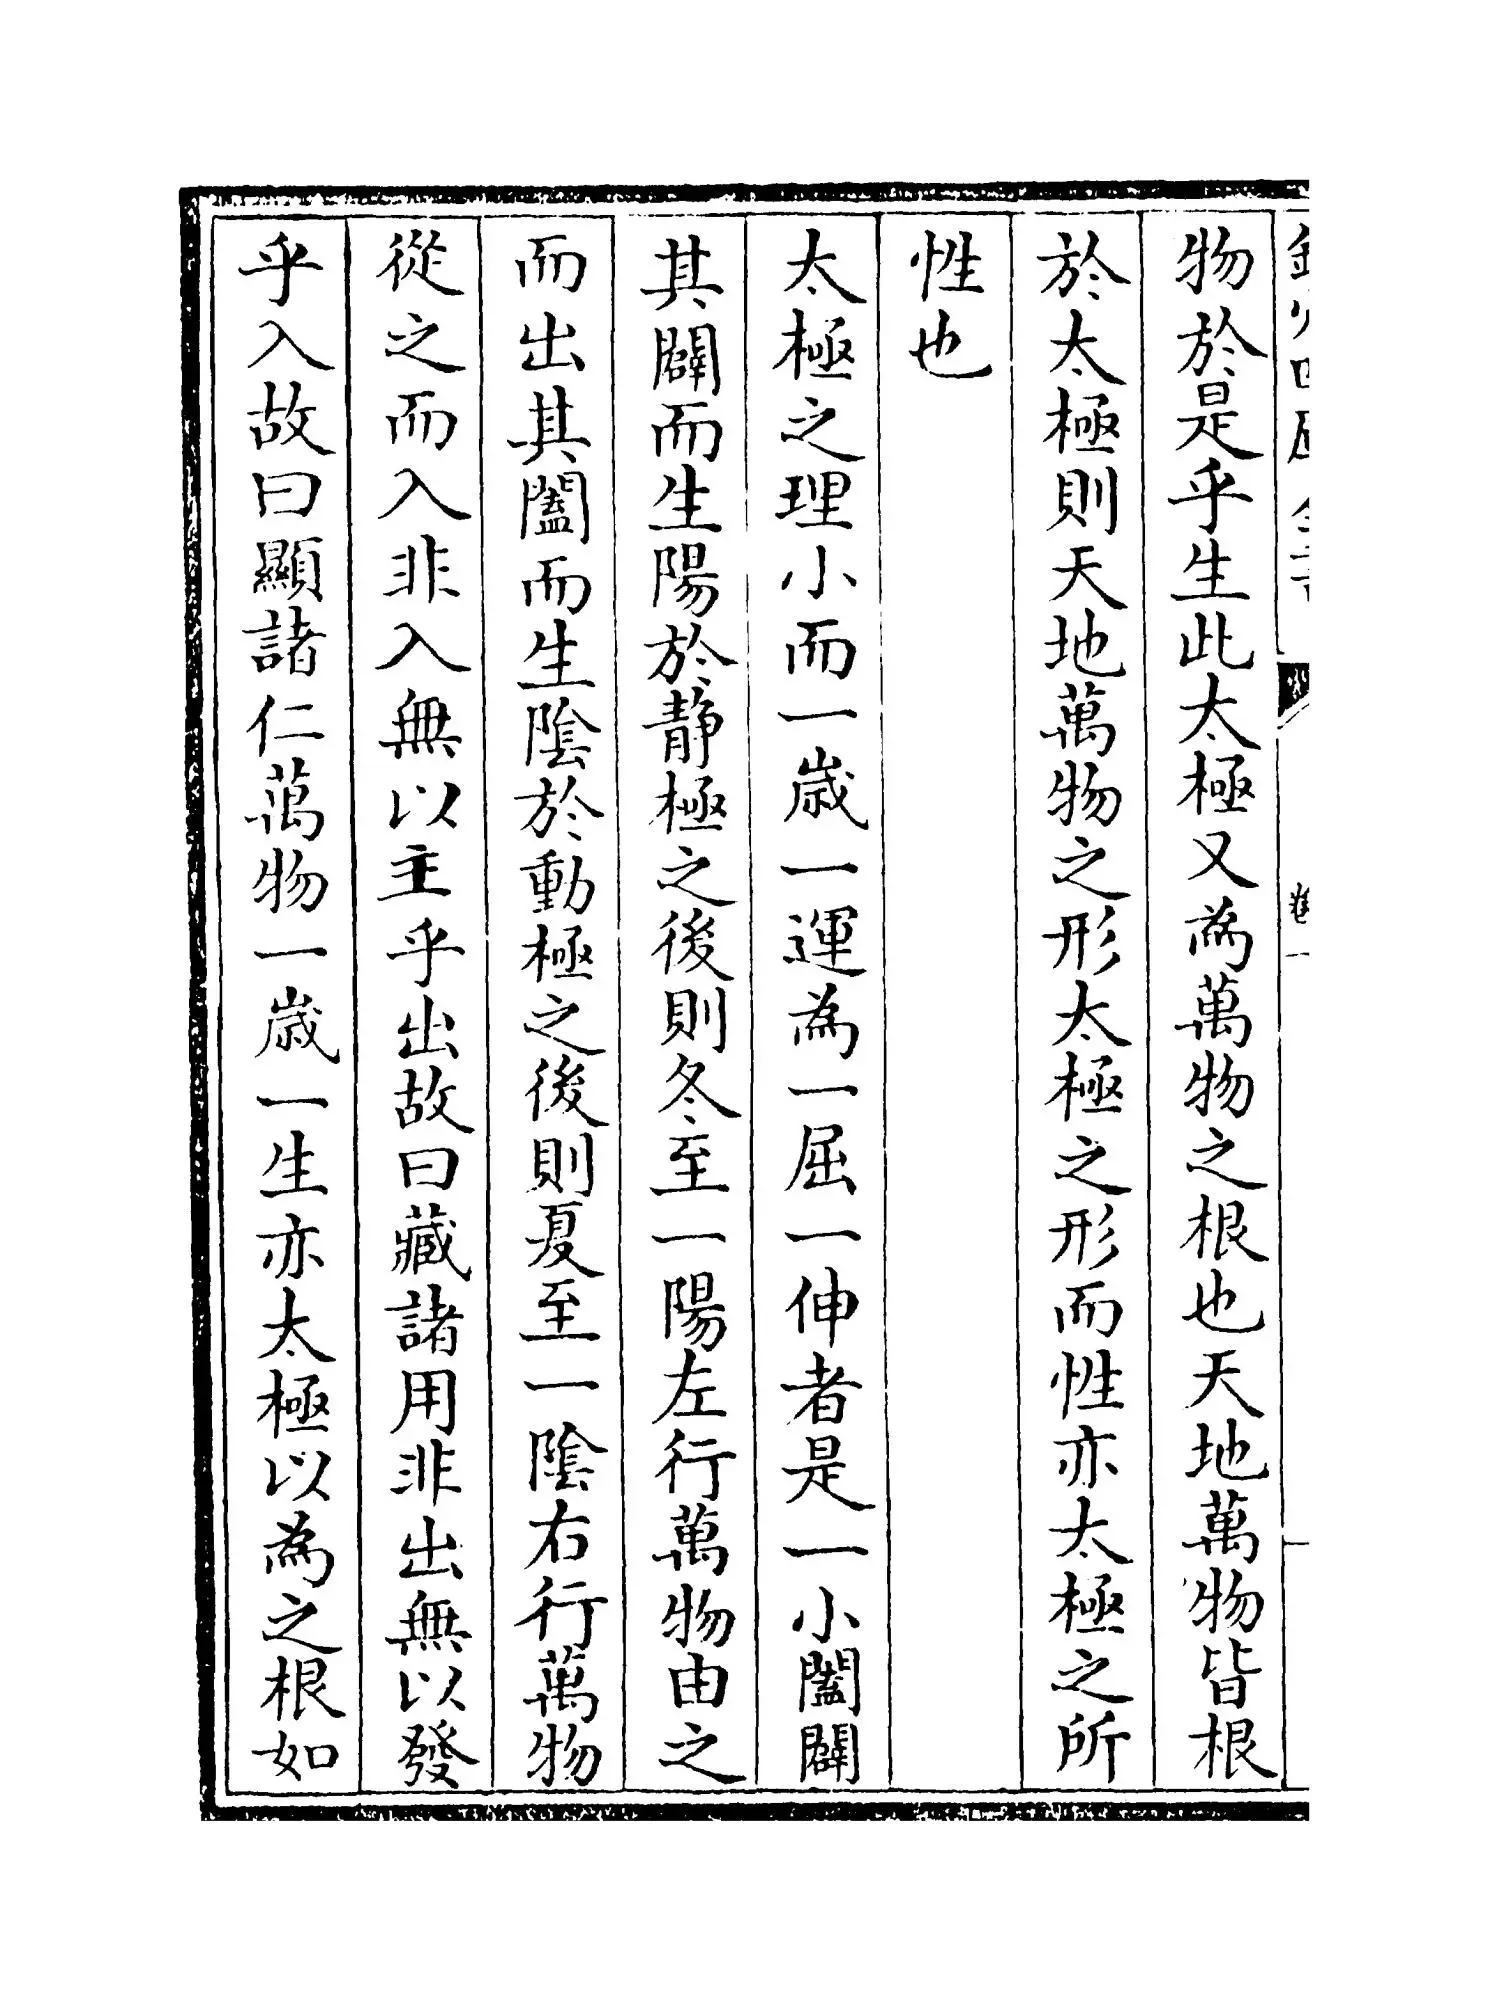 物於是乎生此太極又為萬物之根也天地萬物皆根
於太極則天地萬物之形太極之形而性亦太極之所
性也
太極之理小而一歲一運為一屈一伸者是一小闔闢
其闢而生陽於靜極之後則冬至一陽左行萬物由之
而出其闔而生陰於動極之後則夏至一陰右行萬物
從之而入非入無以主乎出故曰藏諸用非出無以發
乎入故曰顯諸仁萬物一歲一生亦太極以為之根如